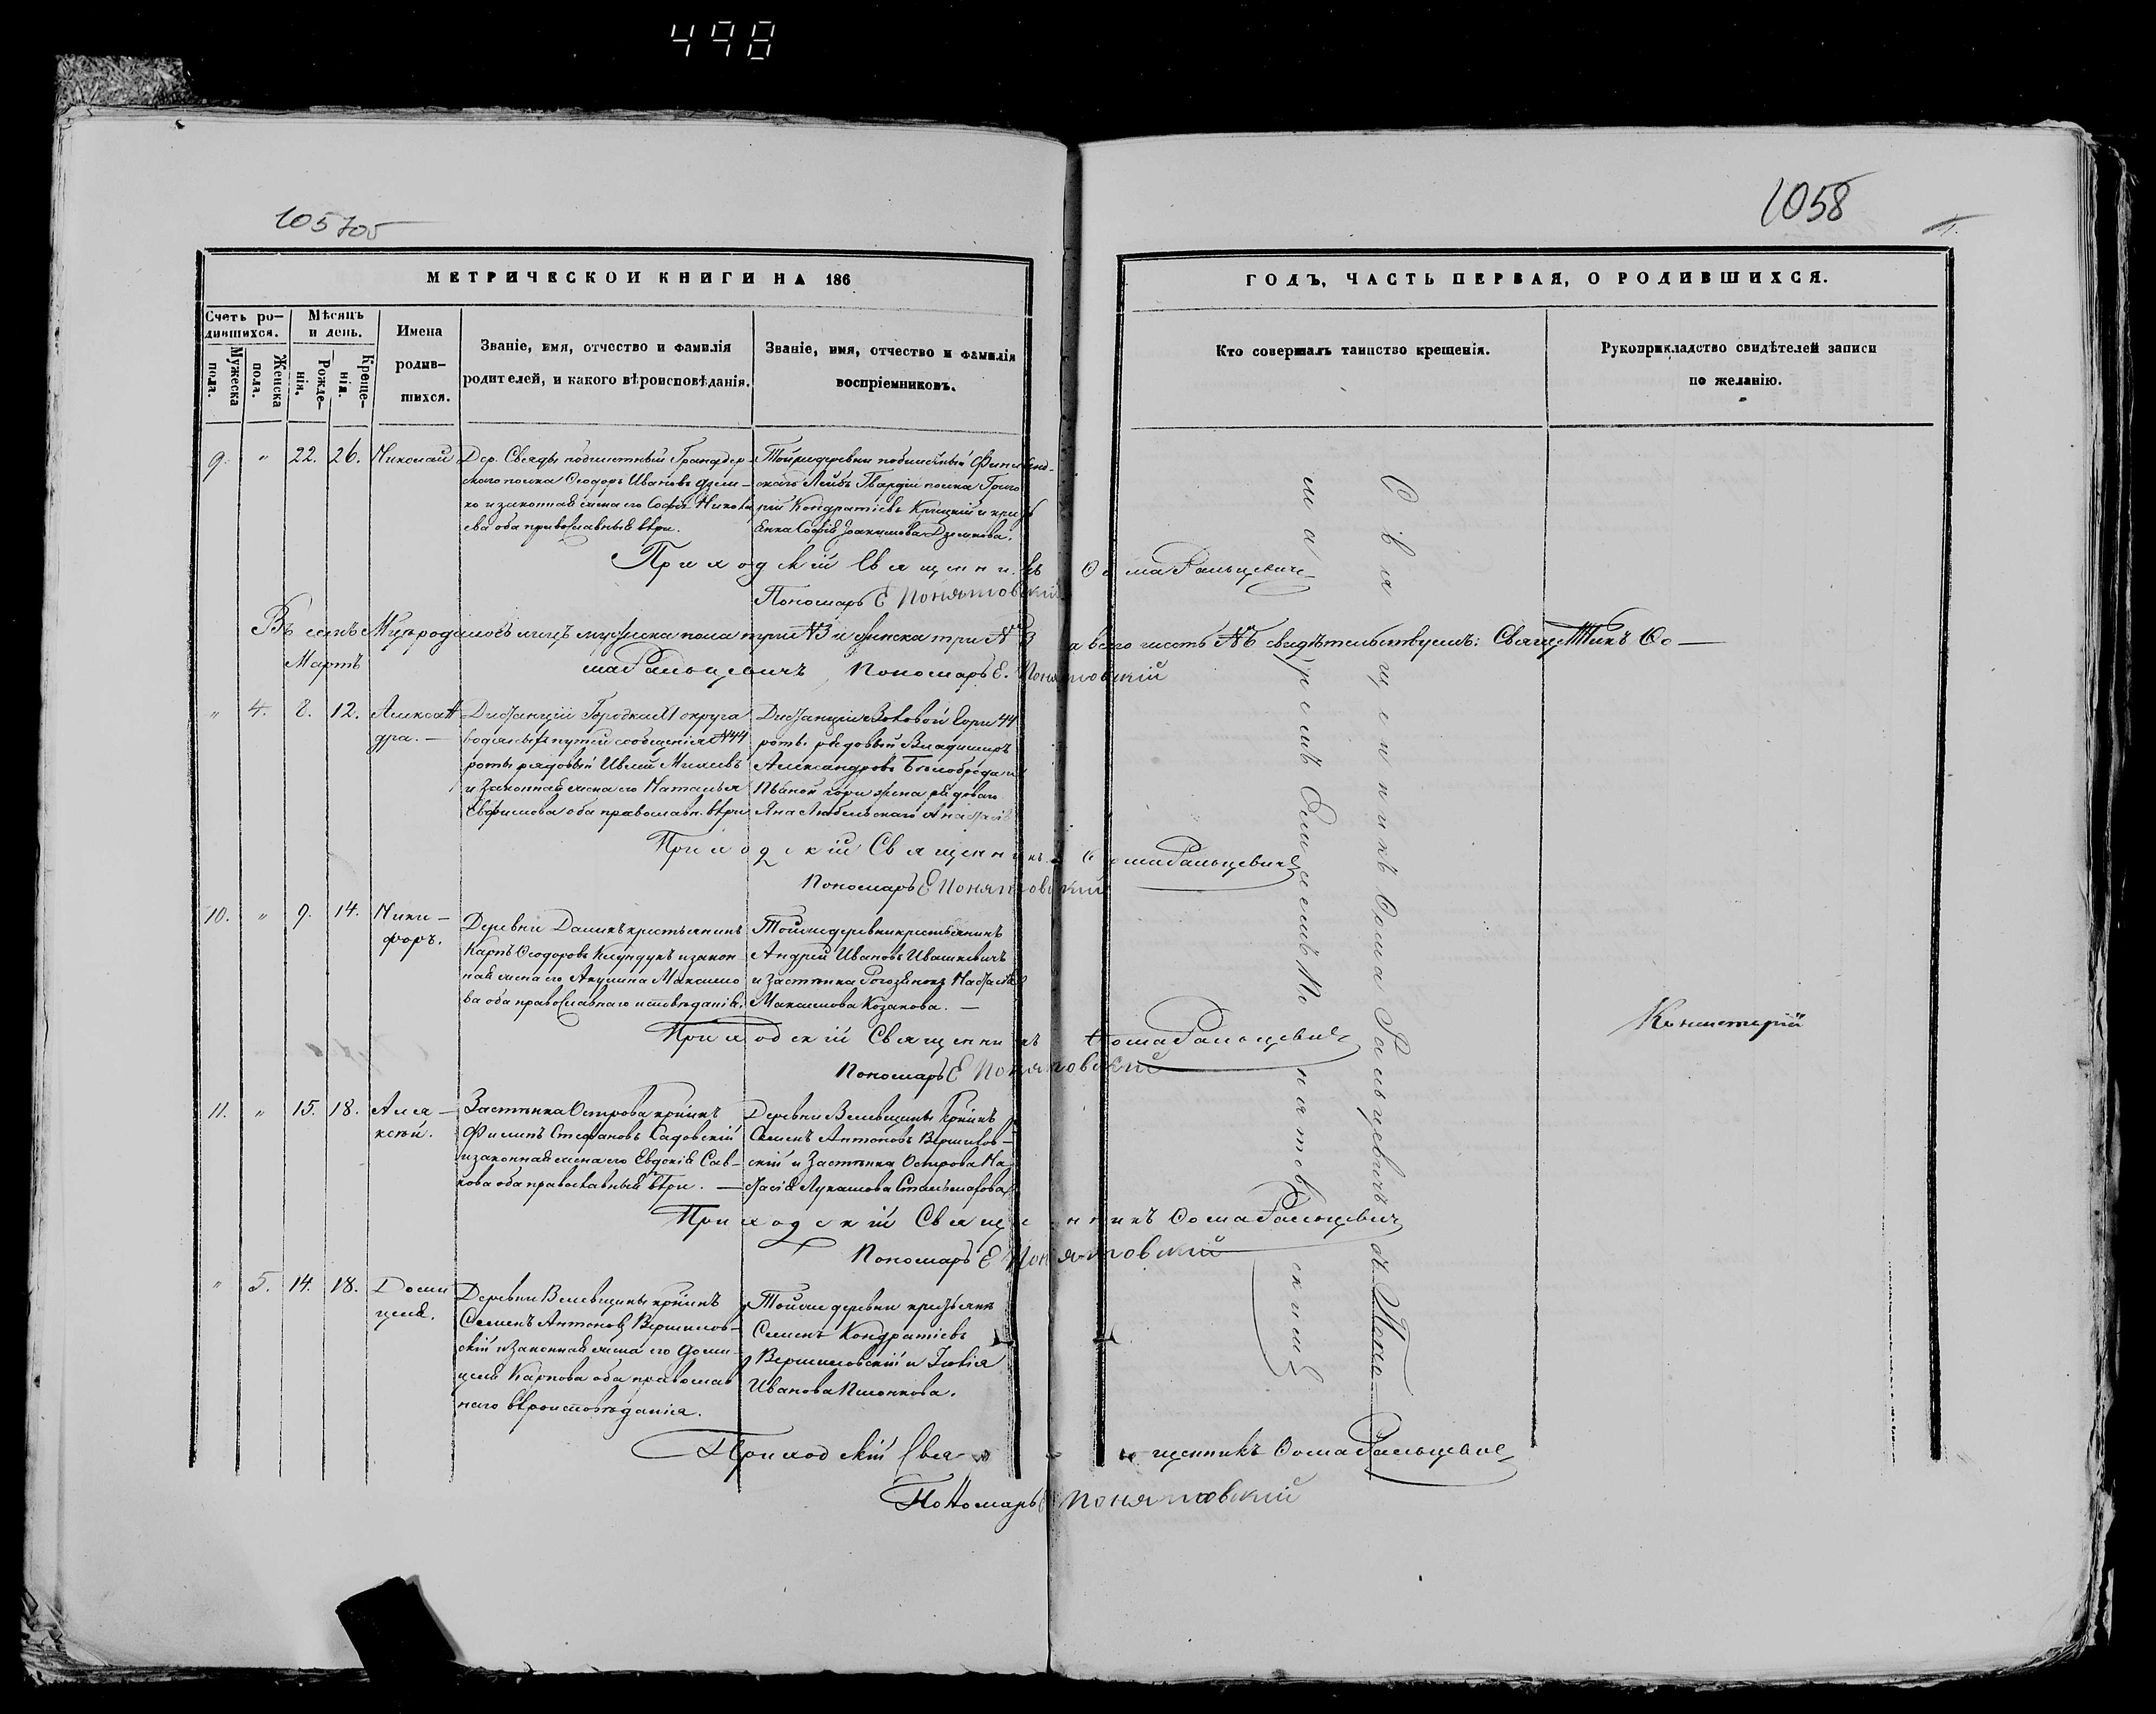 498
105 705
1058
МЕТРИЧЕСКОИ КНИГИ НА 186
ГОДЪ, ЧАСТЬ ПЕРВАЯ, О РОДИВШИХСЯ.
Счетъ ро-
дившихся.
Мужеска
пола.
Женска
пола.
Мѣсяцъ
и день.
Рожде-
нія.
Креще-
нія.
Имена
родив-
шихся.
Званіе, имя, отчество и фамилія
родителей, и какого вѣроисповѣданія.
Званіе, имя, отчество и фамилія
воспріемниковъ.
Кто совершалъ таинство крещенія.
Рукоприкладство свидѣтелей записи
по желанію.
9. " 22. 26. Николай
Дер. Свяды побилетный Гранадер-
скаго полка Ѳеодоръ Ивановъ Дзем-
ко и законная жена его Софія
ева оба православныя вѣры.
Тойже деревни побилетный Финлянд-
скаго Лейбъ Гвардіи полка Григо
рій Кондратіевъ и
Софія Іоакимова
Приходскій Священникъ Ѳома Ральцевичъ
Пономарь Е Понятовскій
Въ семъ М-цѣ родилось лицъ мужеска пола три №3 и женска три №3 а всего шесть №6 свидѣтельствуемъ: Священникъ Ѳо-
ма Ральцевичъ, Пономарь Е. Понятовскій
Мартъ
" 4. 8. 12. Алексан
дра. —
Дистанціи округа
путей сообщенія №44
роты рядовый
и законная жена его Наталья
Евфимова оба православн. вѣры
Дистанціи горы 44
роты рядовый Владимиръ
Александровъ
горы жена рядоваго
Яна
Приходскій Священникъ Ѳома Ральцевичъ
Пономарь Е Понятовскій
10. " 9. 14. Ники-
форъ.
Деревни крестьянинъ
Карпъ Ѳеодоровъ и закон-
ная жена его Акулина Максимо
ва оба православнаго исповѣданія.
Тойже деревни крестьянинъ
Андрей Ивановъ Ивашкевичъ
и застѣнка
Максимова Козакова. —
Приходскій Священникъ Ѳома Ральцевичъ
Пономарь Е Понятовскій
11. " 15. 18. Але-
ксѣй.
Застѣнка Острова кр-нинъ
Филипъ Стефановъ Садовскій
и законная жена его Евдокія Сав-
кова оба православныя вѣры. —
Деревни Велевщины кр-нинъ
Семенъ Антоновъ
скій и Застѣнка Острова На-
стасія Лукашова
Приходскій Священникъ Ѳома Ральцевичъ
Пономарь Е Понятовскій
" 5. 14. 18. Доми
целя.
Деревни Велевщины кр-нинъ
Семенъ Антоновъ
скій и законная жена его Доми-
целя Карпова оба православ
наго вѣроисповѣданія.
Тойже деревни
Семенъ Кондратіевъ
и
Иванова
Приходскій Священникъ Ѳома Ральцевичъ
Пономарь Е Понятовскій
Священникъ Ѳома Ральцевичъ съ Поно-
маремъ Емилемъ Понятовскимъ